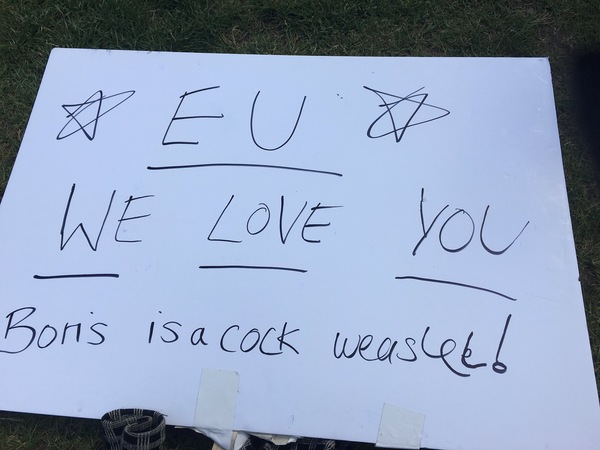 EU
WE LOVE YOU
Boris is a cock